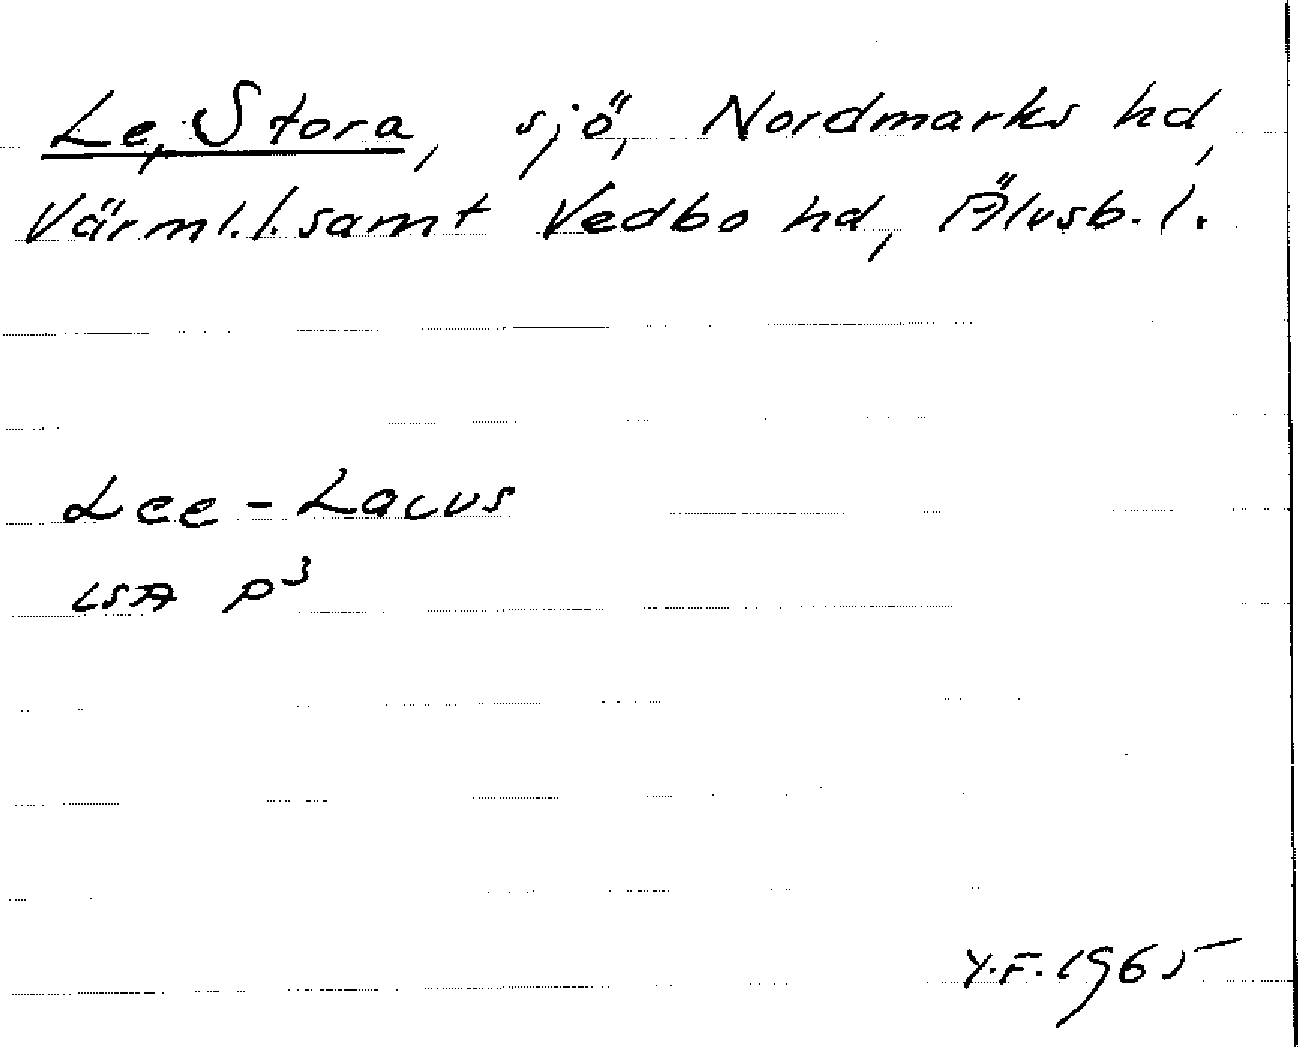 Le, Stora, sjö, Nordmarks hd,
Värml. l. samt Vedbo hd, Älvsb. l.
Lee - Lacus
LSA P³
Y.F. 1965